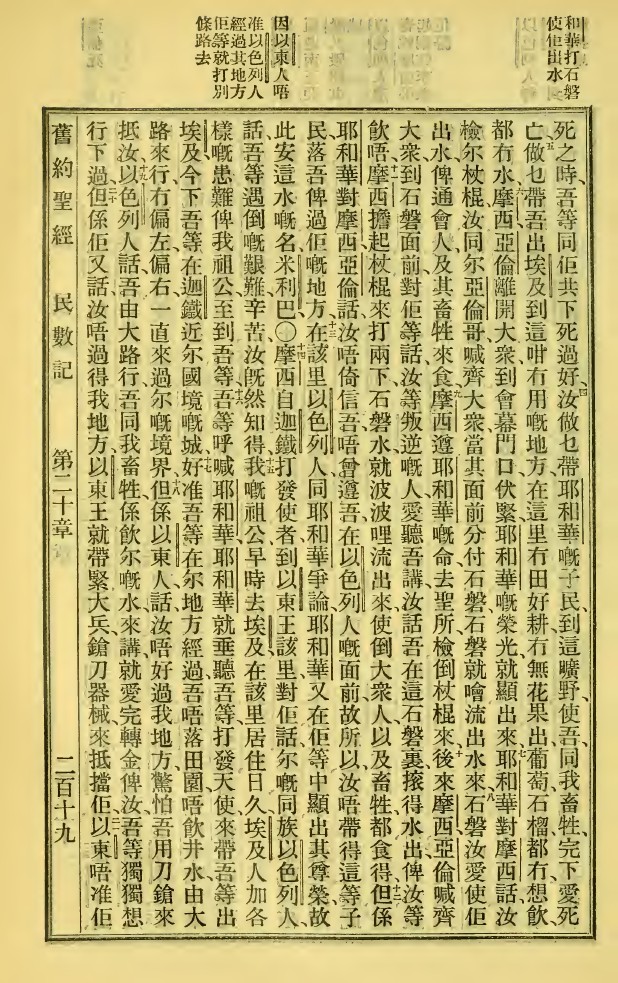 和華打石磐
使佢出水
因以東人唔
准以色列人
經過其地方
佢等就打別
條路去
死之時、吾等同佢共下死過好、四汝做乜帶耶和華嘅子民、到這曠野、使吾同我畜牲、完下愛死
亡、五做乜帶吾出埃及、到這咁冇用嘅地方、在這里冇田好耕、冇無花果出、葡萄石榴都冇、想飲
都冇水、六摩西亞倫離開大衆、到會幕門口伏緊、耶和華嘅榮光就顯出來、七耶和華對摩西話、八汝
檢尔杖棍、汝同尔亞倫哥喊齊大衆、當其面前分付石磐、石磐就噲流出水來、石磐汝愛使佢
出水、俾通會人及其畜牲來食、九摩西遵耶和華嘅命、去聖所檢倒杖棍來、十後來摩西亞倫喊齊
大衆到石磐面前、對佢等話、汝等叛逆嘅人、愛聽吾講、汝話吾在這石磐裏、搲得水出俾汝等
飲唔、十一摩西擔起杖棍來打兩下石磐、水就波波哩流出來、使倒大衆人以及畜牲都食得、十二但係
耶和華對摩西亞倫話、汝唔倚信吾、唔曾遵吾在以色列人嘅面前、故所以汝唔帶得這等子
民、落吾俾過佢嘅地方、十三在該里以色列人同耶和華爭論、耶和華又在佢等中顯出其尊榮、故
此安這水嘅名米利巴〇十四摩西自迦鐵打發使者、到以東王該里、對佢話、尔嘅同族以色列人
話、吾等遇倒嘅艱難辛苦、汝旣然知得、十五我嘅祖公早時去埃及、在該里居住日久、埃及人加各
樣嘅患難、俾我祖公至到吾等、十六吾等呼喊耶和華、耶和華就垂聽吾等、打發天使來帶吾等出
埃及、今下吾等在迦鐵、近尔國境嘅城、十七好准吾等在尔地方經過、吾唔落田園、唔飲井水、由大
路來行、冇偏左偏右、一直來過尔嘅境界、十八但係以東人話、汝唔好過我地方、驚怕吾用刀鎗來
抵汝、十九以色列人話、吾由大路行、吾同我畜牲係飲尔嘅水來講、就愛完轉金俾汝、吾等獨獨想
行下過、二十但係佢又話、汝唔過得我地方、以東王就帶緊大兵鎗刀器械來抵擋佢、二一以東唔准佢
舊約聖經 民數記 第二十章 二百十九